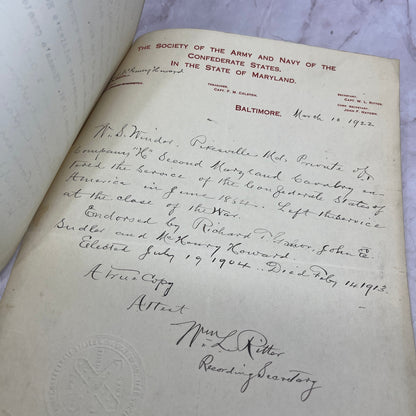 THE SOCIETY OF THE ARMY AND NAVY OF THE
CONFEDERATE STATES,
IN THE STATE OF MARYLAND.
Howard
TREASURER,
CAPT. F. M. COLSTON.
SECRETARY,
CAPT. W. L. RITTER.
JOHN F. HAYDEN.
BALTIMORE, March 10 1922
Wm. S. Windor, Pikesville Md, Private of
Company "H" Second Maryland Cavalry en-
tered the service of the Confederate States of
America in June 1864. Left the service
at the close of the War.
Endorsed by Richard T. John E.
Sudler and McHenry Howard.
Elected July 19, 1904. Died Feby 14, 1913.
A true Copy
Attest
Wm L. Ritter
Recording Secretary